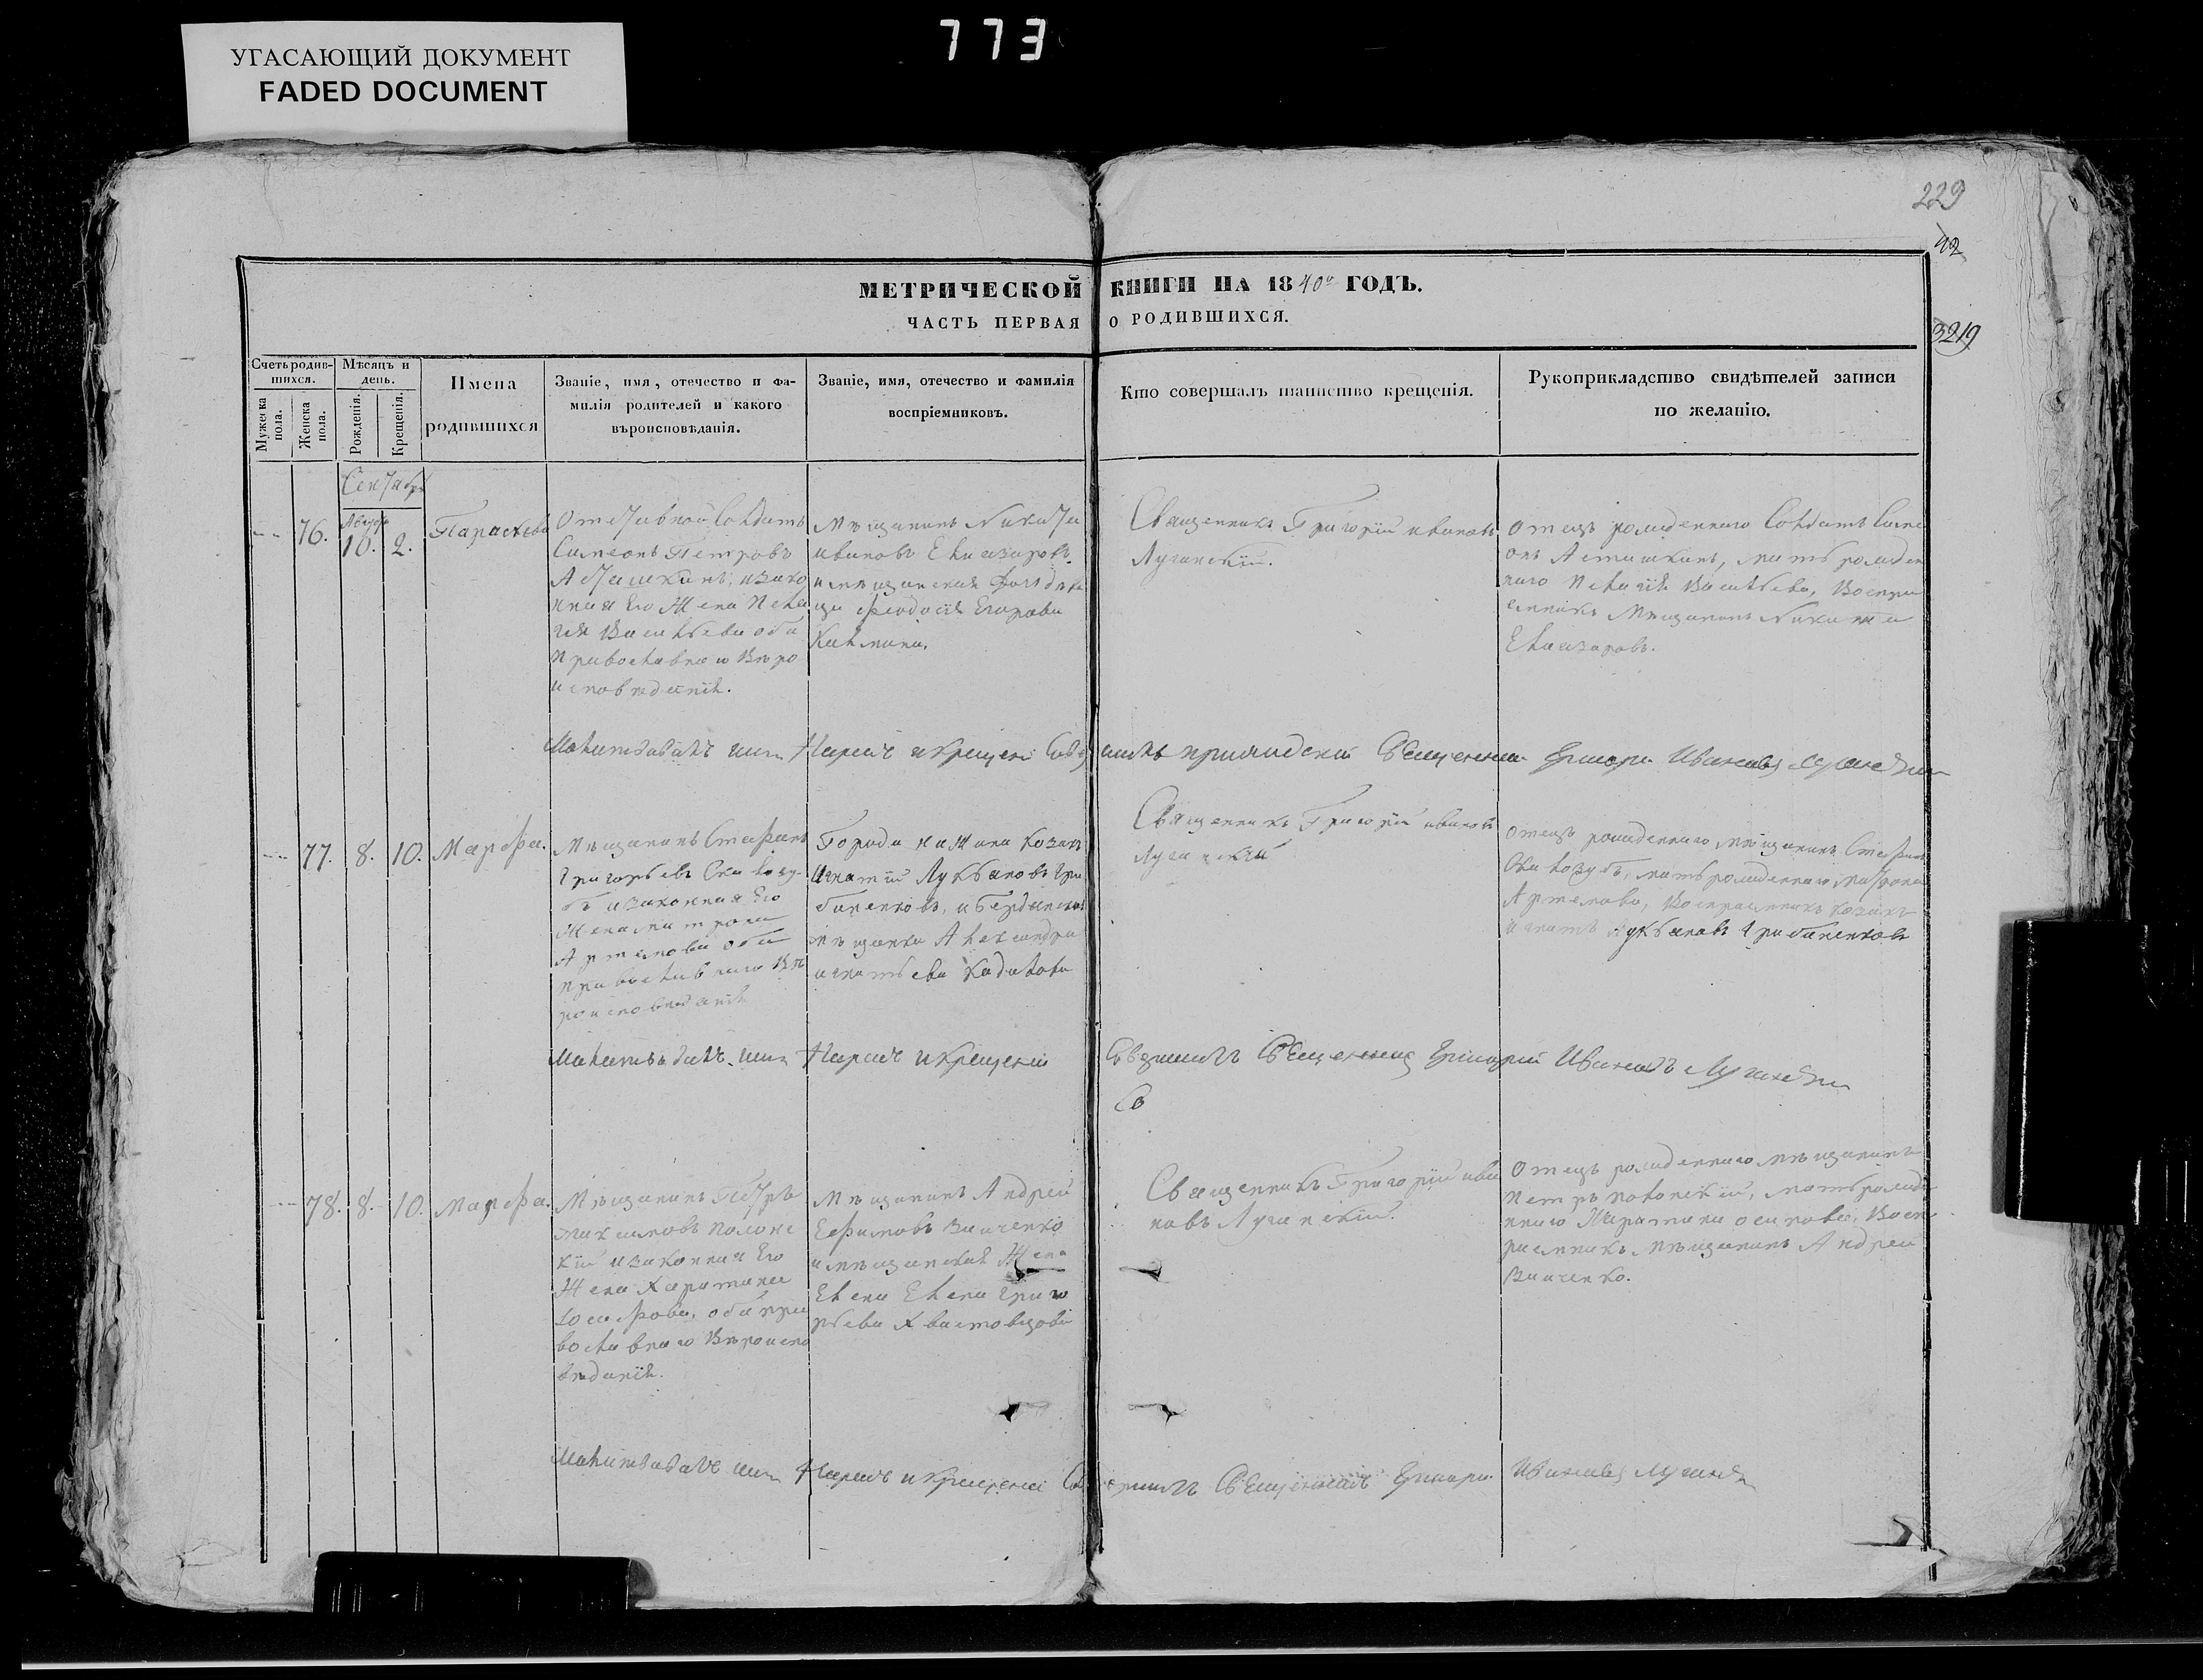 773
УГАСАЮЩИЙ ДОКУМЕНТ
FADED DOCUMENT
229
42
3219
МЕТРИЧЕСКОЙ КНИГИ НА 1840 ГОДЪ.
ЧАСТЬ ПЕРВАЯ О РОДИВШИХСЯ.
Счетъ родив-
шихся.
Мужеска пола.
Женска пола.
Мѣсяцъ и
день.
Рожденія.
Крещенія.
Имена
родившихся
Званіе, имя, отечество и фа-
милія родителей и какого
вѣроисповѣданія.
Званіе, имя, отечество и фамилія
воспріемниковъ.
Кто совершалъ таинство крещенія.
Рукоприкладство свидѣтелей записи
по желанію.
Сентябрь
76.
Авгус
10.
2.
Параскева
Отставной Солдатъ
Симеонъ Петровъ
Асташкинъ, изако
нная Его Жена Пела
гія Васильева оба
Православнаго Вѣро
исповѣданія.
Мѣщанинъ Никита
ивановъ Елиазаровъ
имѣщанская
Феодосія Егорова
Священникъ Григорій ивановъ
Луганскій.
отецъ рожденнаго Солдатъ Симе
онъ Асташкинъ, мать рожден
наго Пелагія Васильева, Воспри
емникъ Мѣщанинъ Никита
Елиазаровъ.
Молитвовалъ имя Нарекъ и Крещеніе приходской Священникъ Григорій Ивановъ Луганскій
77.
8.
10.
Марфа.
Мѣщанинъ Стефанъ
Григорьевъ Скалозу
бъ изаконная Его
Жена матрона
Артемова оба
православнаго Вѣ
роисповѣданія
Города нижина козакъ
Игнатій Лукьяновъ Гри
баненковъ, и бердянская
мѣщанка Александра
игнатьева Кадилова
Священникъ Григорій ивановъ
Луганскій
отецъ рожденнаго мѣщанинъ Стефанъ
Скалозубъ, мать рожденнаго матрона
Артемова, Восприемникъ козакъ
игнатъ Лукьяновъ Грибаненковъ
Молитвовалъ имя Нарекъ и Крещеніе Совершилъ Священникъ Григорій Ивановъ Луганскій
Со
78.
8.
10.
Марфа.
Мѣщанинъ Петръ
максимовъ Полонс
кій изаконная Его
Жена Харитина
Іосифова, оба пра
вославнаго Вѣроиспо
вѣданія.
Мѣщанинъ Андрей
Ефимовъ Заиченко
имѣщанская Жена
Елена Елена Григо
рьева Хвастовцова
Священникъ Григорій ива
новъ Луганскій.
Отецъ рожденнаго мѣщанинъ
Петръ полонскій, мать рожде
ннаго Харитина осипова, Восп
риемникъ мѣщанинъ Андрей
Заиченко.
Молитвовалъ имя Нарекъ и Крещеніе Совершилъ Священникъ Григорій Ивановъ Луганскій